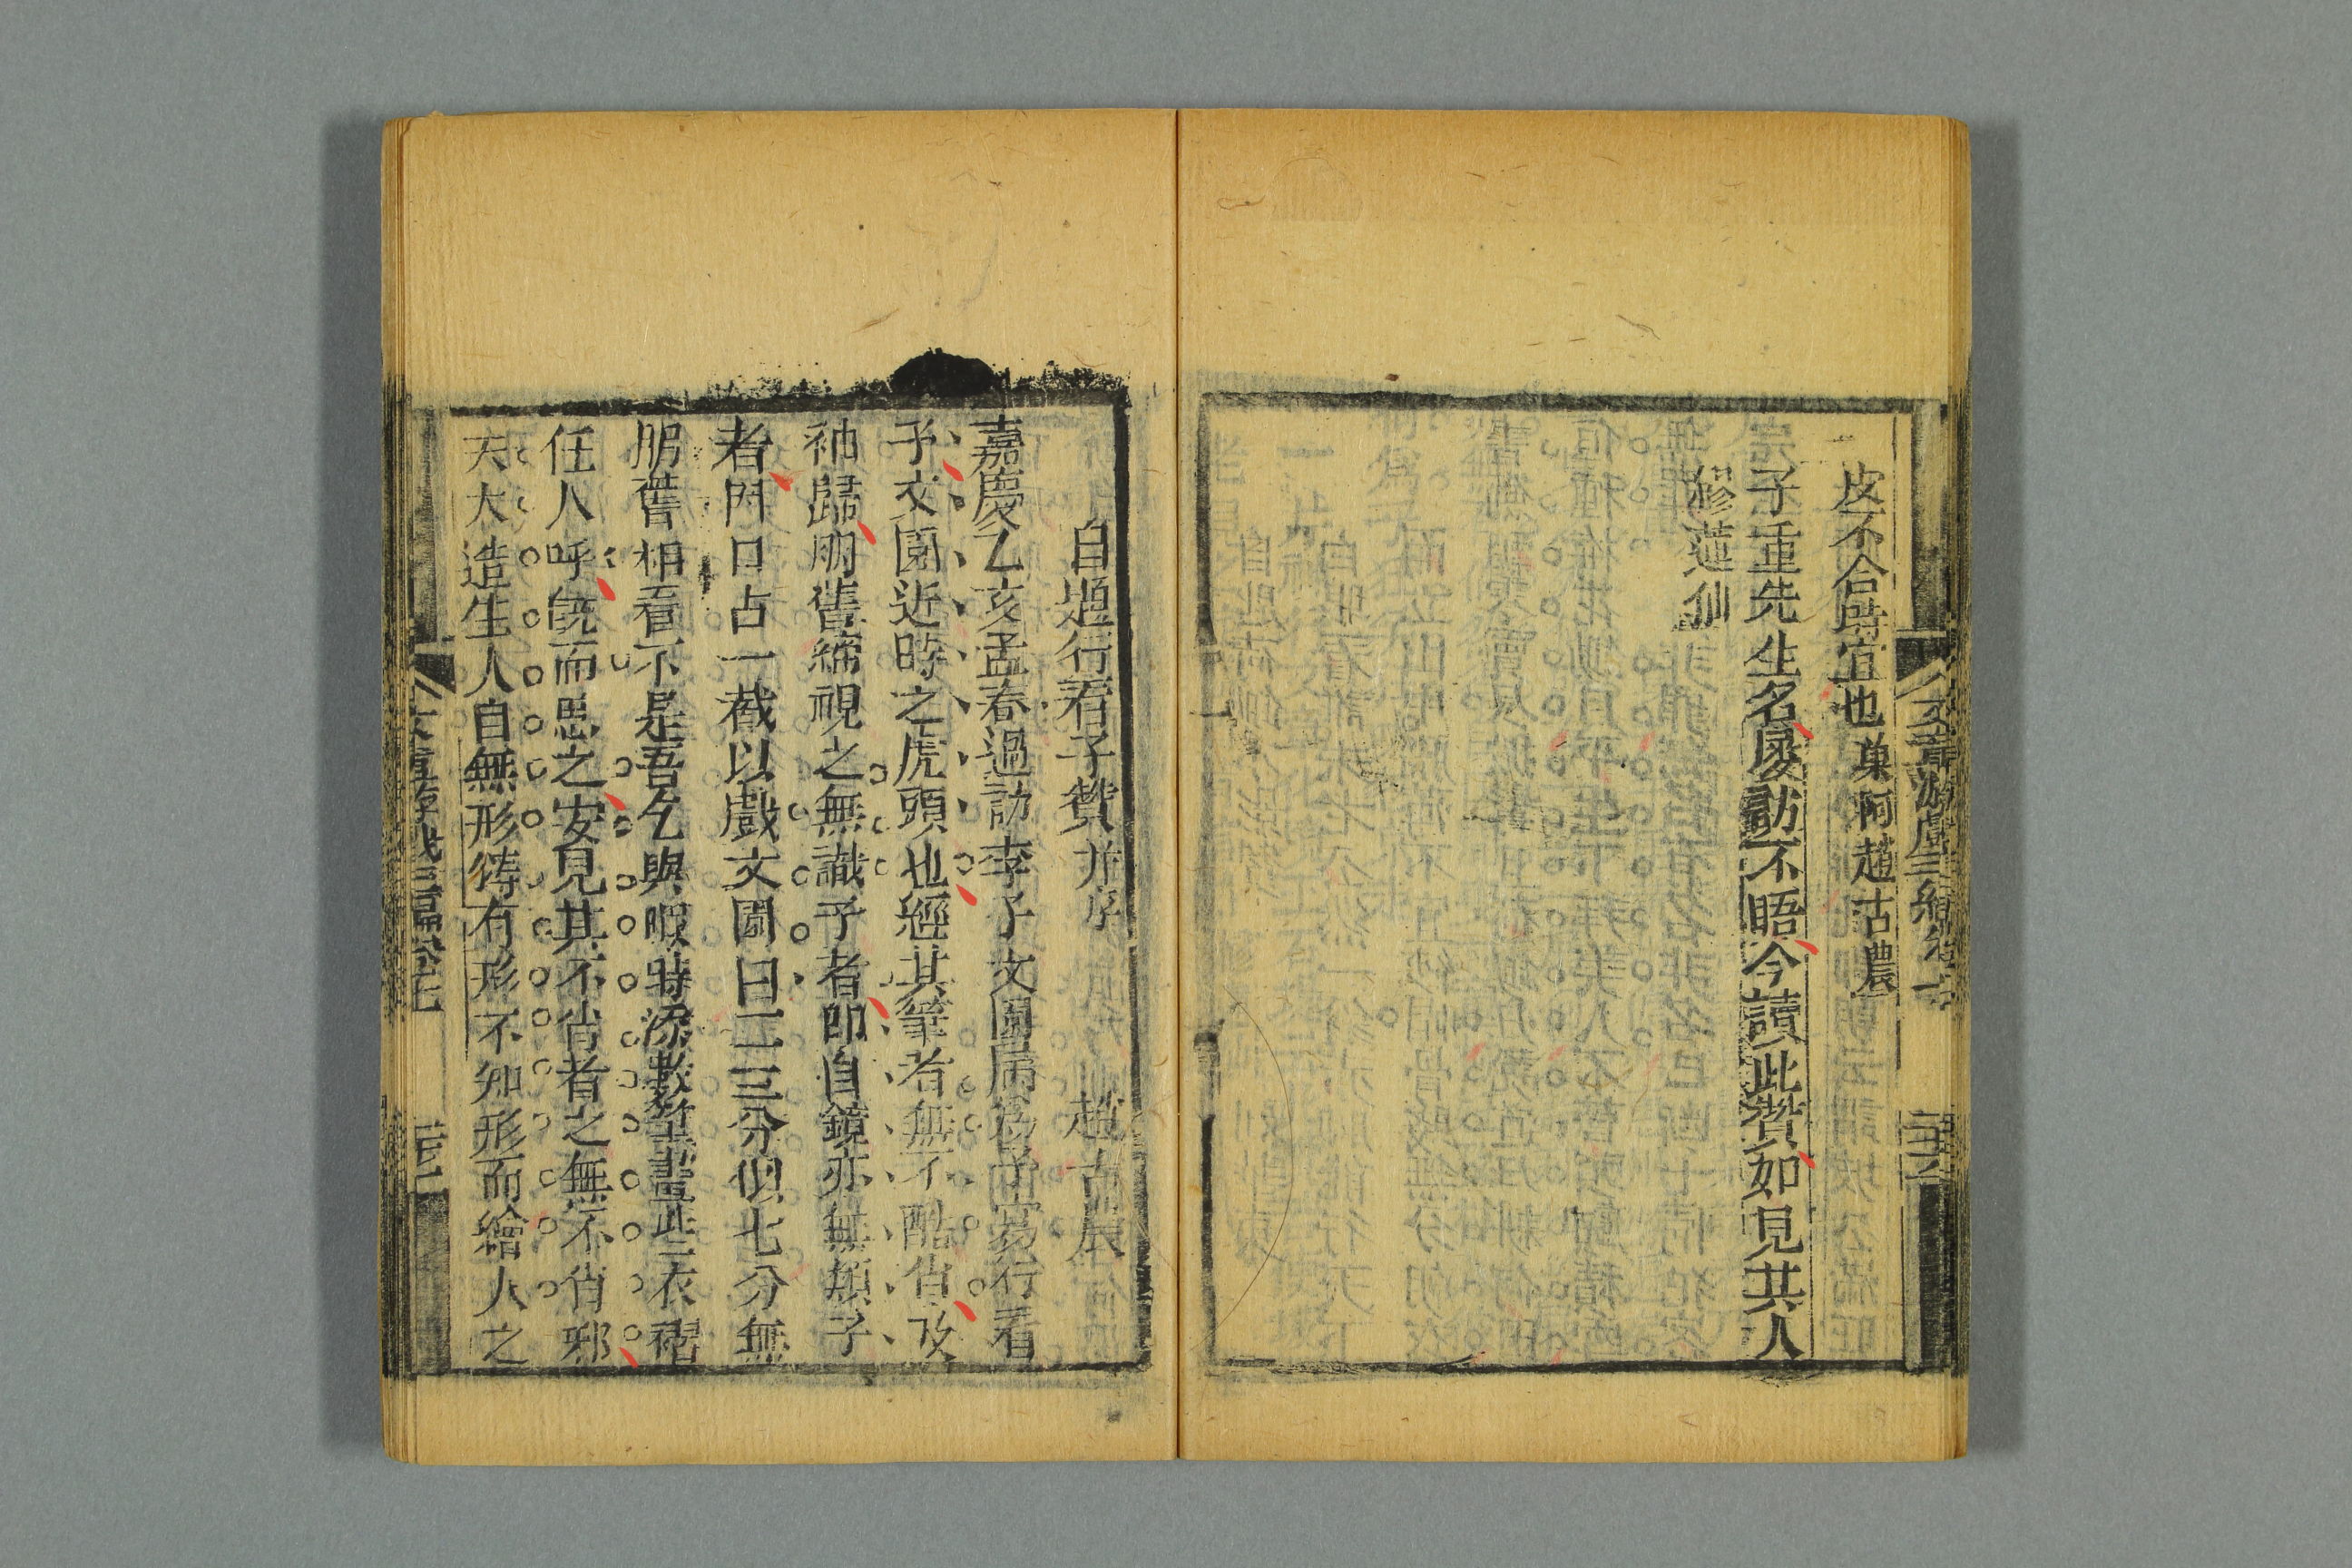 文章游戲三編卷七
皮不合時宜也巢阿趙古農
子重先生名屢訪不晤今讀此贊如見其人
繆蓮仙
自題行看子贊并序 趙古農
嘉慶乙亥孟春過訪李子文園屬爲予寫行看
子文園近時之虎頭也經其筆者無不酷肖及
袖歸朋舊締視之無識予者即自鏡亦無類子
者門口占一截以戲文園曰二三分似七分無
朋舊相看不是吾乞與暇時添數筆畫些衣褶
任人呼旣而思之安見其不肖者之無不肖邪
夫大造生人自無形鑄有形不知形而繪人之
文章游戲三編卷七